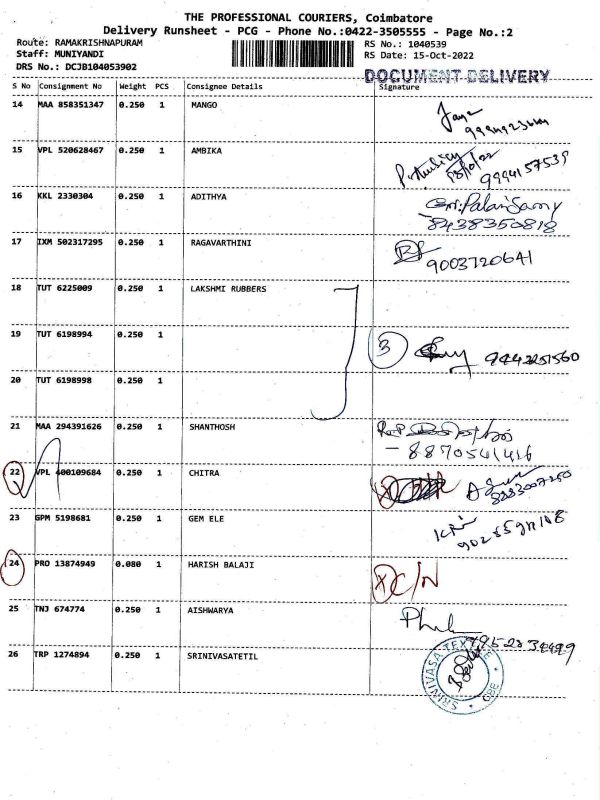 THE PROFESSIONAL COURIERS, Coimbatore
Delivery Runsheet - PCG - Phone No.:0422-3505555 - Page No.:2
Route: RAMAKRISHNAPURAM RS No.: 1040539
Staff: MUNIYANDI RS Date: 15-Oct-2022
DRS No.: DCJB104053902
DOCUMENT DELIVERY
S No Consignment No Weight PCS Consignee Details Signature
14 MAA 858351347 0.250 1 MANGO
15 VPL 520628467 0.250 1 AMBIKA
9994157539
16 KKL 2330304 0.250 1 ADITHYA
8438350818
17 IXM 502317295 0.250 1 RAGAVARTHINI
9003720641
18 TUT 6225009 0.250 1 LAKSHMI RUBBERS
19 TUT 6198994 0.250 1
3 9442251560
20 TUT 6198998 0.250 1
21 MAA 294391626 0.250 1 SHANTHOSH
- 8870541416
22 VPL 400109684 0.250 1 CHITRA
23 GPM 5198681 0.250 1 GEM ELE
24 PRO 13874949 0.080 1 HARISH BALAJI
D/N
25 TNJ 674774 0.250 1 AISHWARYA
26 TRP 1274894 0.250 1 SRINIVASATETIL
SRINIVASA TEXTILE